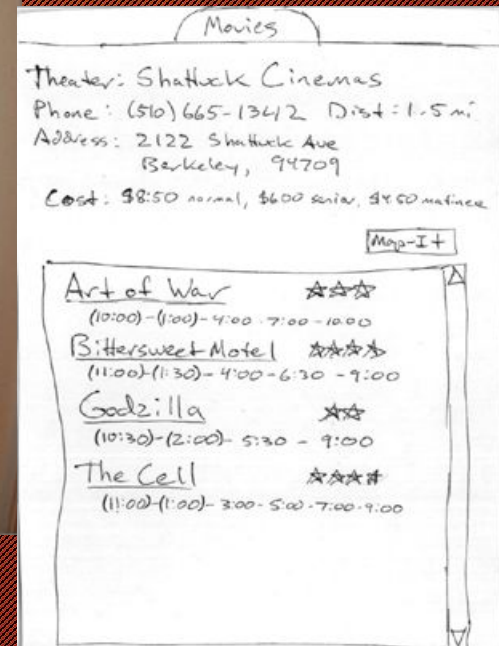 Movies
Theater: Shattuck Cinemas
Phone: (510) 665-1342 Dist: 1.5 mi
Address: 2122 Shattuck Ave
Berkeley, 94709
Cost: $8:50 normal, $600 senior, $4.50 matinee
Map-It
Art of War
(10:00)-(1:00)-4:00-7:00-10:00
Bittersweet Motel
(11:00)-(1:30)-4:00-6:30-9:00
Godzilla
(10:30)-(2:00)-5:30-9:00
The Cell
(11:00)-(1:00)-3:00-5:00-7:00-9:00